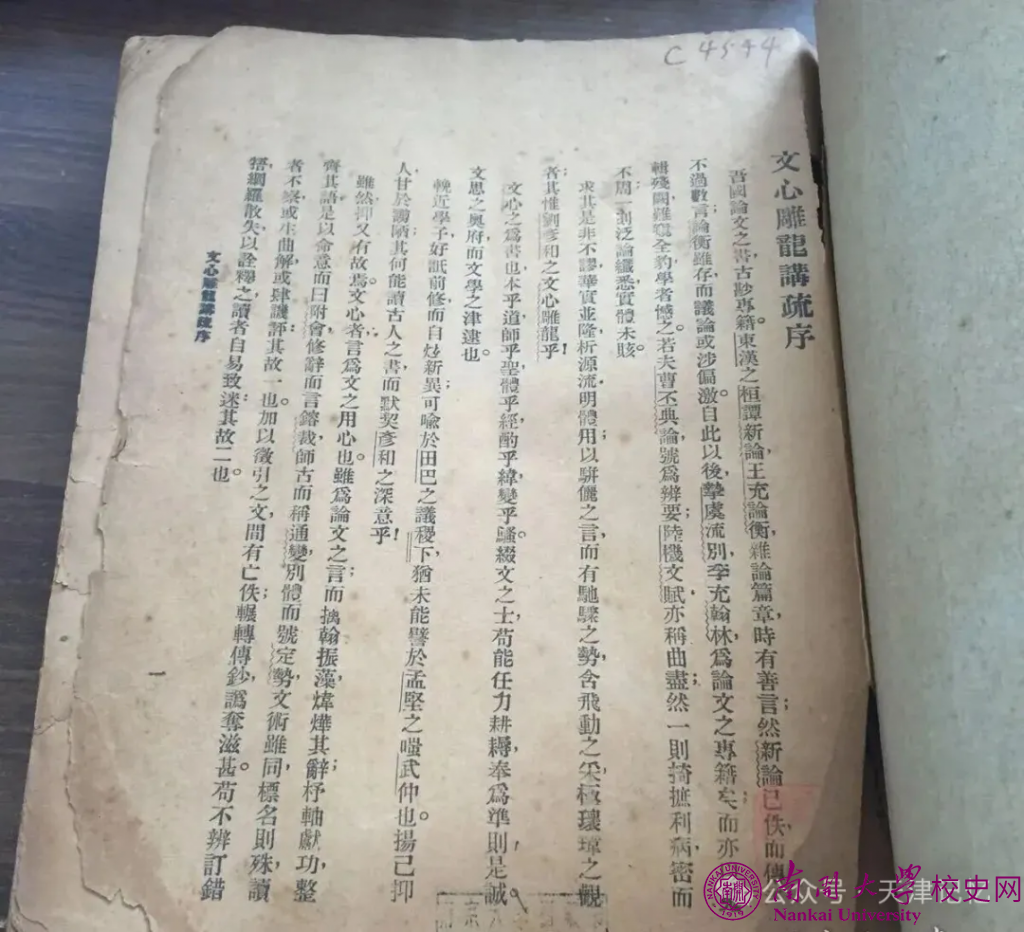 C 4544
文心雕龍講疏序
吾國論文之書古尟專籍。東漢之桓譚新論王充論衡雜論篇章時有善言;然新論已佚而傳
不過數言;論衡雖存而議論或涉偏激。自此以後,摯虞流別,李充翰林,爲論文之專籍矣,而亦
輯殘闕雖窺全豹學者憾之。若夫曹丕典論號爲辨要;陸機文賦亦稱曲盡;然一則掎摭利病密而
不周;一則泛論纖悉實體未賅。
求其是非不謬華實並隆析源流明體用以駢儷之言而有馳驟之勢含飛動之采極瓌瑋之觀
者其惟劉彥和之文心雕龍乎!
文心之爲書也本乎道師乎聖體乎經酌乎緯變乎騷。綴文之士苟能任力耕耨奉爲準則是誠
文思之奧府而文學之津逮也。
輓近學子好詆前修而自炫新異;可喩於田巴之議稷下猶未能譬於孟堅之嗤武仲也。揚己抑
人甘於謭陋其何能讀古人之書而默契彥和之深意乎!
雖然抑又有故焉:文心者言爲文之用心也。雖爲論文之言而摛翰振藻煒燁其辭杼軸獻功整
齊其語;是以命意而曰附會,修辭而言鎔裁,師古而稱通變,別體而號定勢,文術雖同,標名則殊,讀
者不察或生曲解或肆譏評其故一也。加以徵引之文間有亡佚,輾轉傳鈔,譌奪滋甚。苟不辨訂錯
牾,網羅散失,以詮釋之,讀者自易致迷:其故二也。
文心雕龍講疏序
一
公众号·天津
南開大學校史网
Nankai University
NANKAI UNIVERSITY
1919